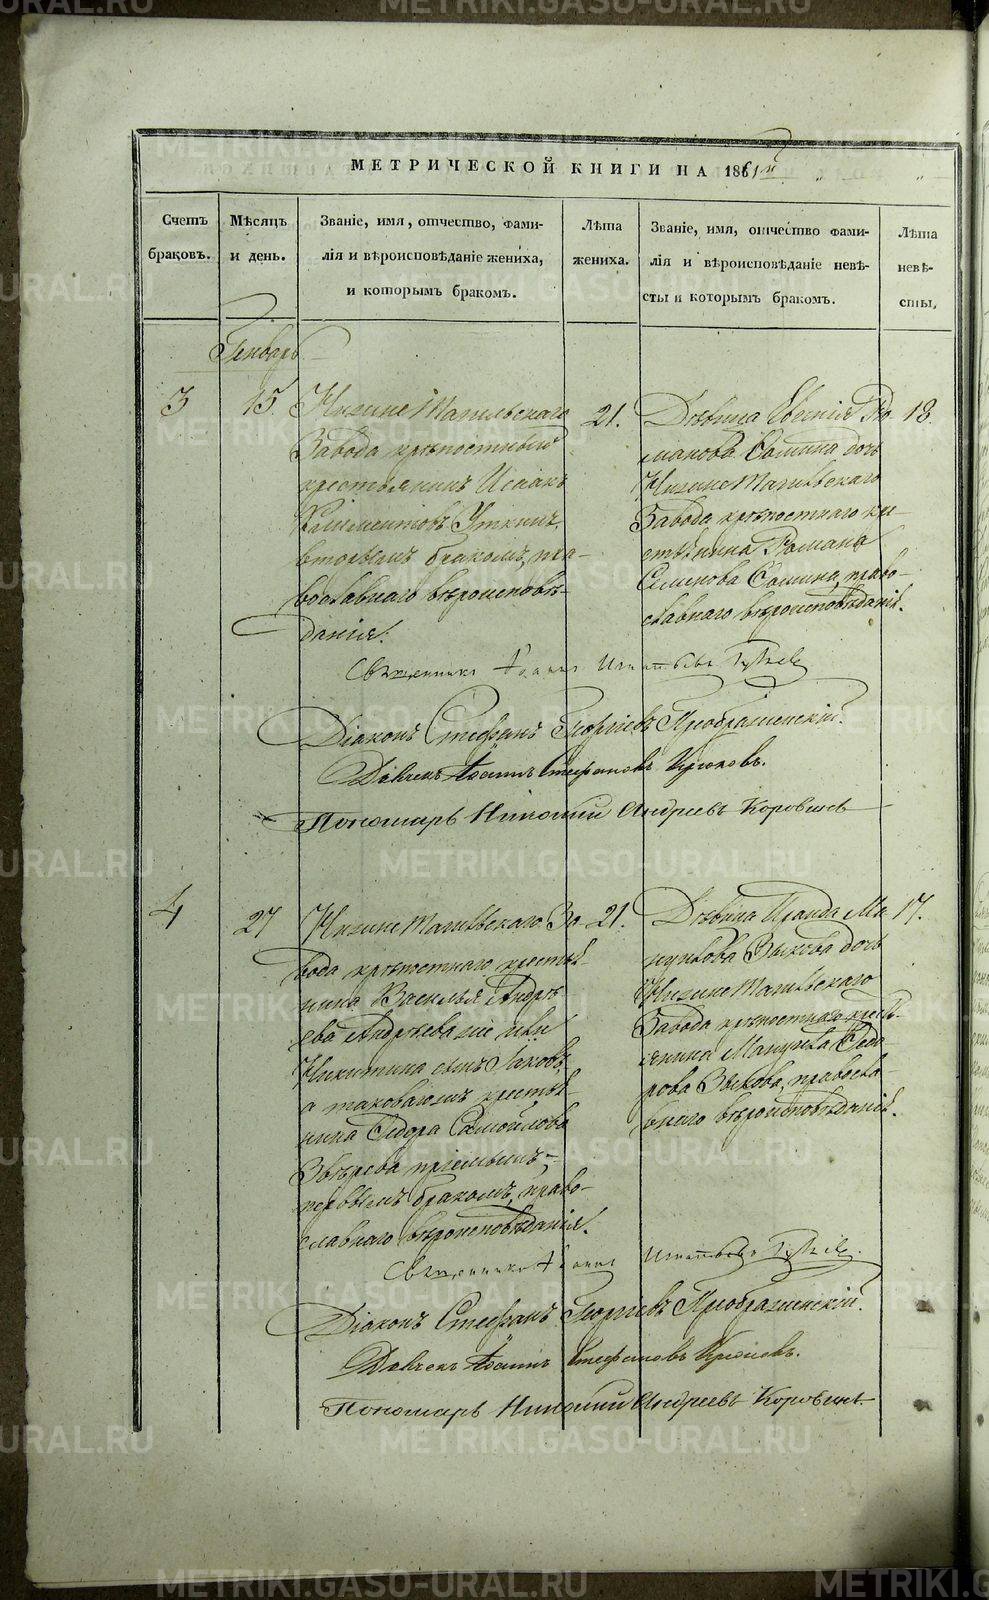 МЕТРИЧЕСКОЙ КНИГИ НА 1861й
Счетъ браковъ.
Мѣсяцъ и день.
Званіе, имя, отчество, фами-
лія и вѣроисповѣданіе жениха,
и которымъ бракомъ.
Лѣта жениха.
Званіе, имя, отчество фами-
лія и вѣроисповѣданіе невѣ-
сты и которымъ бракомъ.
Лѣта невѣ-
сты,
Генварь
3
15.
Нижне Тагильскаго
Завода крѣпостный
крестьянинъ Исаакъ
Климентовъ Уткинъ,
вторымъ бракомъ, пра-
вославнаго вѣроисповѣ-
данія.
21.
Дѣвица Евгенія Ро-
манова Сомина дочь
Нижне Тагильскаго
Завода крѣпостнаго кре-
стьянина Романа
Семенова Сомина, право-
славнаго вѣроисповѣданія.
18.
Священникъ Іоаннъ Игнатьевъ
Діаконъ Стефанъ Георгіевъ Преображенскій.
Дьячекъ Іоаннъ Стефановъ Крюковъ.
Пономарь Николай Андреевъ Коровинъ
4
27
Нижне Тагильскаго За-
вода крѣпостнаго крестья-
нина Василья Андрѣ-
ева Андрѣева же или
Никитина сынъ Іаковъ,
а таковаго крестья-
нина Ѳедора Самойлова
Звѣрева пріемышъ,
первымъ бракомъ, право-
славнаго вѣроисповѣданія.
21.
Дѣвица Ираида Ма-
нуилова Зыкова дочь
Нижне Тагильскаго
Завода крѣпостнаго кресть-
янина Мануила Ѳедо-
рова Зыкова, правосла-
внаго вѣроисповѣданія.
17.
Священникъ Іоаннъ Игнатьевъ
Діаконъ Стефанъ Георгіевъ Преображенскій.
Дьячекъ Іоаннъ Стефановъ Крюковъ.
Пономарь Николай Андреевъ Коровинъ.
METRIKI.GASO-URAL.RU